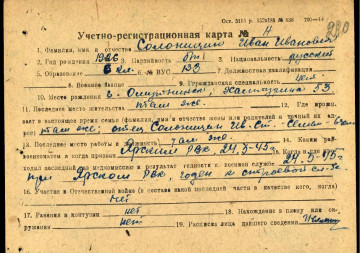 Учетно-регистрационная карта № Н
1. Фамилия, имя и отчество Солоницын Иван Иванович
2. Год рождения 1926 3. Партийность б/п 4. Национальность русский
5. Образование 6 кл. 6. № ВУС 133 7. Должностная квалификация
8. Военное звание 9. Гражданская специальность нет
10. Место рождения
11. Последнее место жительства там же. 12. Где прожи-
вает в настоящее время семья (фамилия, имя и отчество жены или родителей и точный их ад-
рес) там же; отец Солоницын Ив.
13. Последнее место работы и должность там же. 14. Каким рай-
военкоматом и когда призван Ярским РВК 24.5.45г. Когда и где
ходил последний раз медкомиссию и результат годности к военной службе 24.5.45г.
при Ярском РВК, годен к строевой
16. Участие в Отечественной войне (в составе какой последней части в качестве кого, когда)
нет
17. Ранения и контузии нет 18. Нахождение в плену или ок-
ружении нет 19. Расписка лица давшего сведения